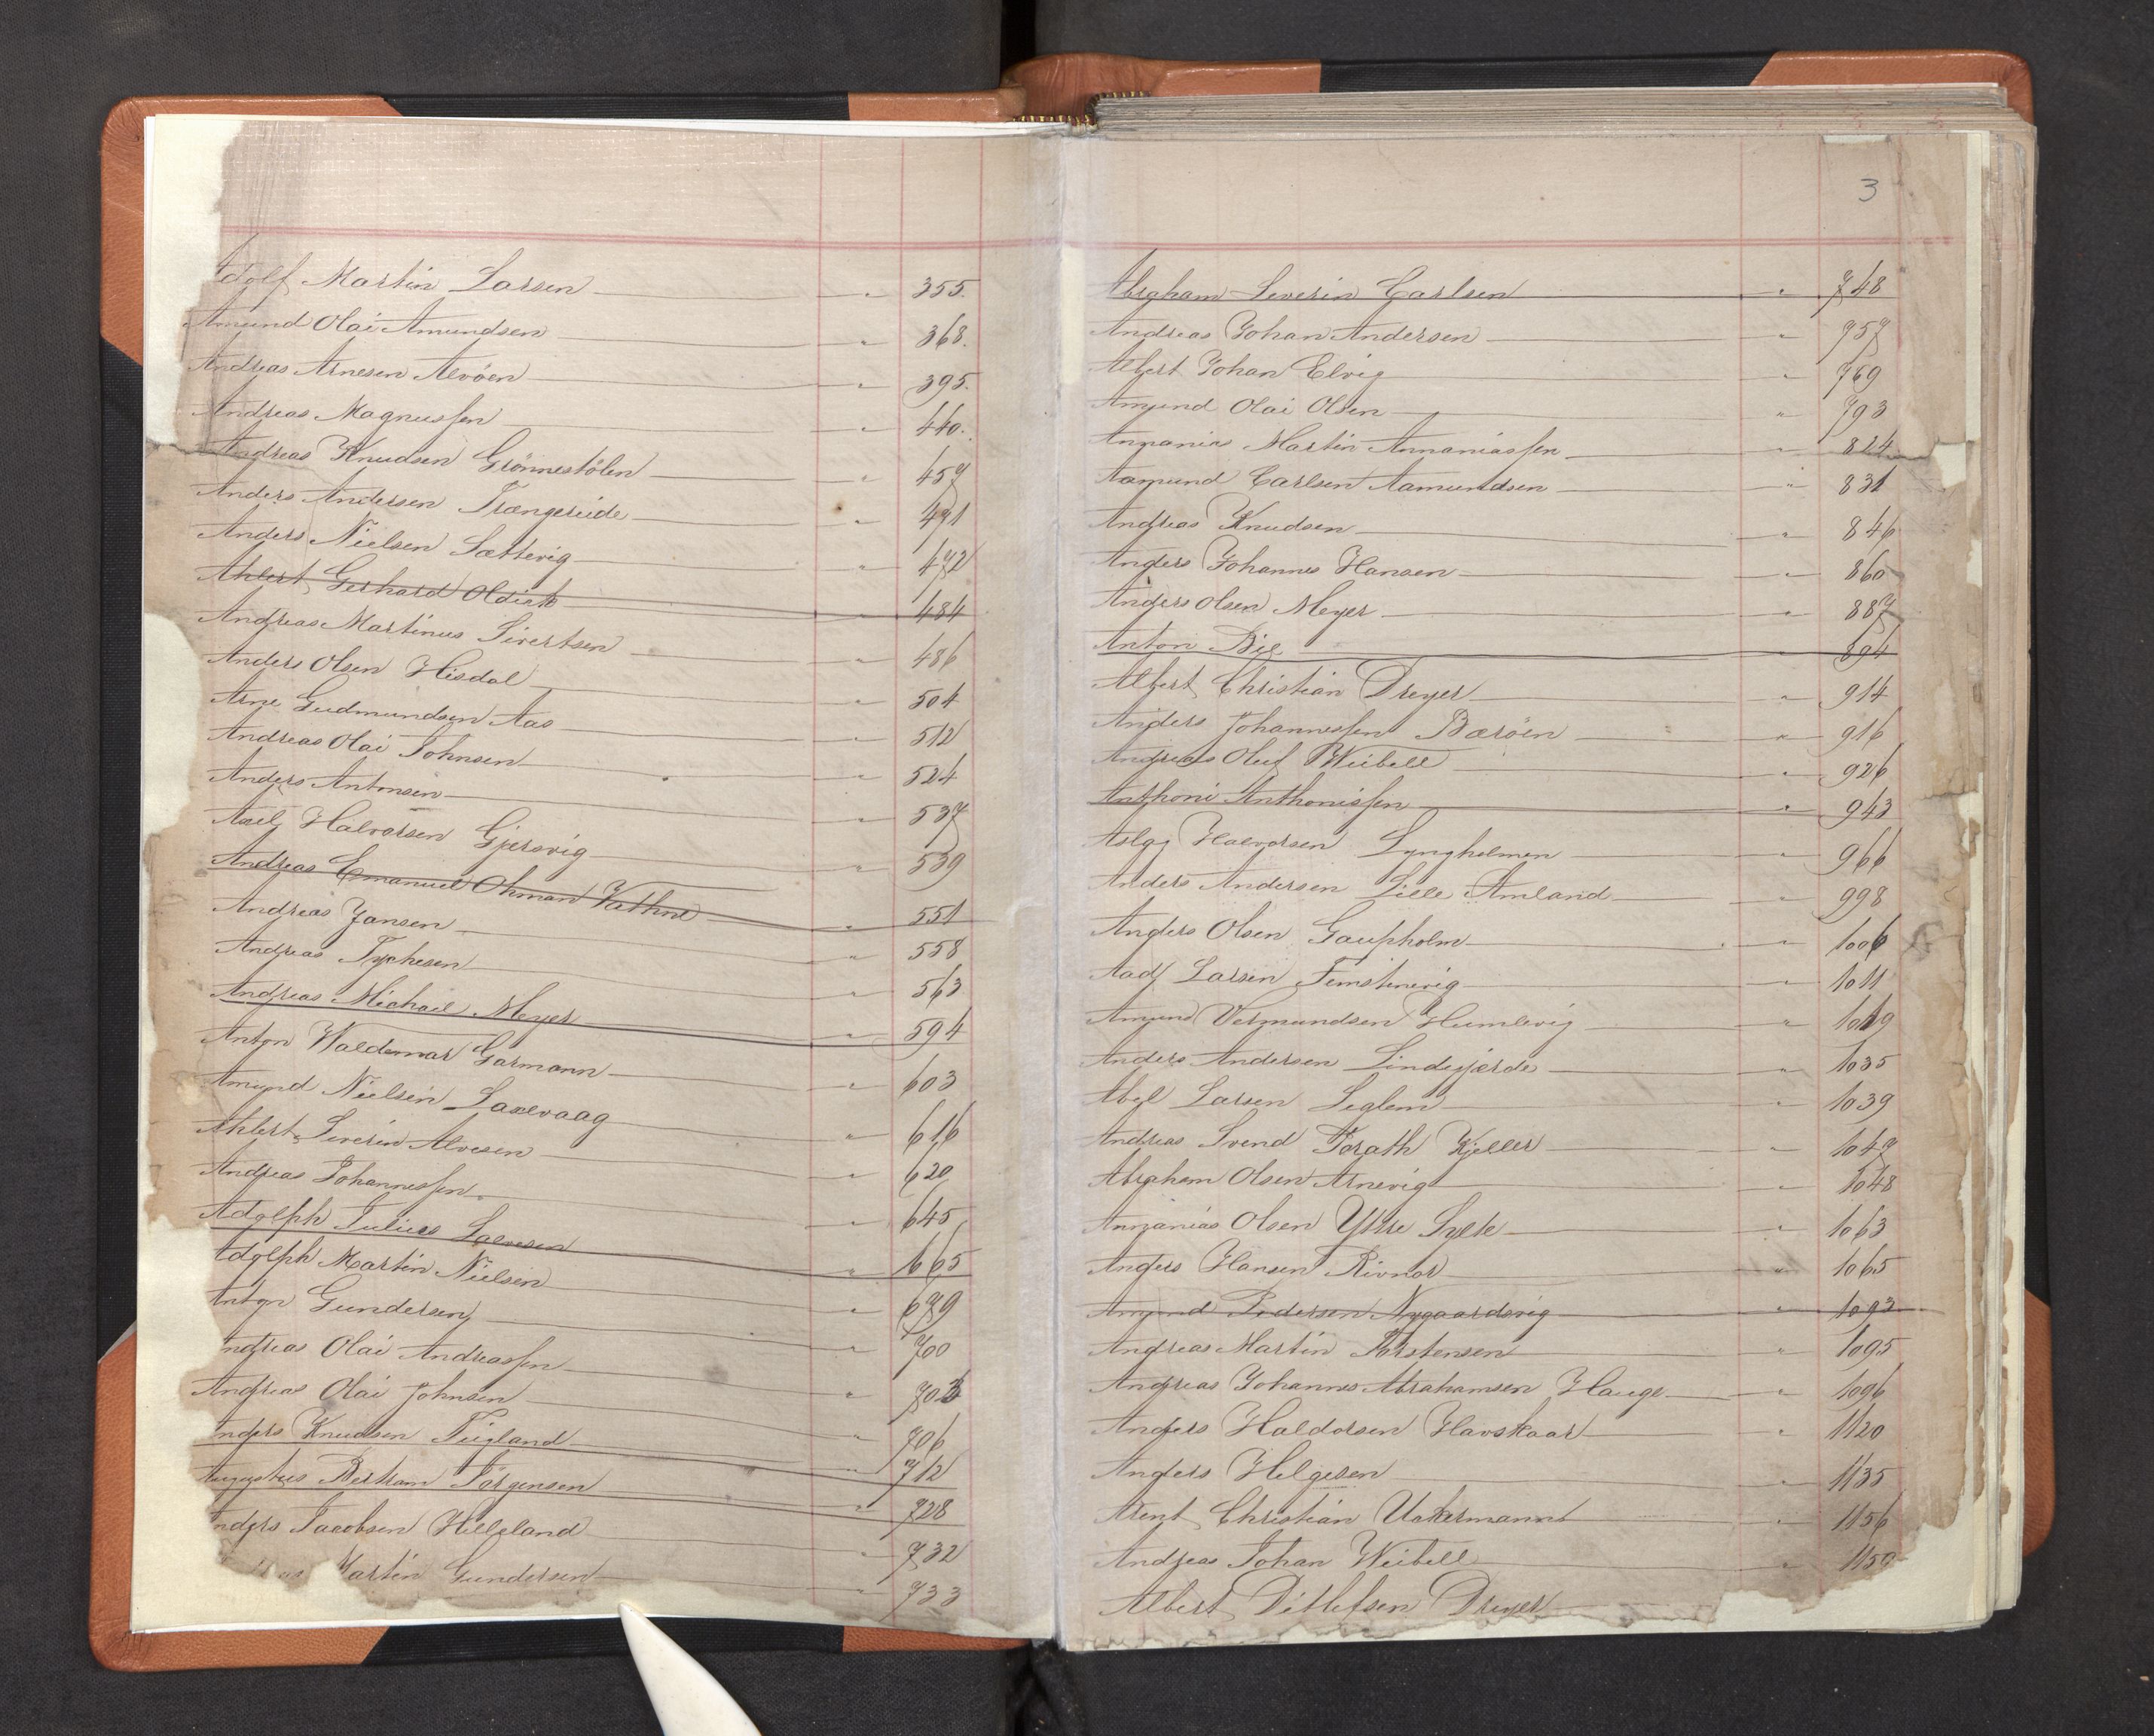 Adolf Martin Larsen " 355.
Amund Olai Amundsen " 368.
Andreas Arnesen Alvöen " 395.
Andreas Magnussen " 440.
Andreas Knudsen Grönnestölen " 457
Anders Andersen Trængereide " 471
Anders Nielsen Sættevig " 472
Ahlert Gerhard Oldick " 484
Andreas Martinus Sivertsen " 486
Anders Olsen Hisdal " 504
Arne Gudmundsen Aas " 512
Andreas Olai Johnsen " 524
Anders Antonsen " 537
Axel Halvorsen Gjersvig " 539
Andreas Emanuel Ohman Vathne " 551
Andreas Jansen " 558
Andreas Typhesen " 563
Andreas Michael Meyer " 594
Anton Waldemar Garmann " 603
Amund Nielsen Laxevaag " 616
Ahlert Severin Alvesen " 620
Andreas Johannessen " 645
Adolph Julius Larsen " 665
Adolph Martin Nielsen " 679
Anton Gundersen " 700
Andreas Olai Andreassen " 703
Andreas Olai Johnsen " 706
Anders Knudsen Teigland " 712
Augustus Bertram Jørgensen " 728
Anders Jacobsen Hilleland " 732
Martin Gundersen " 733
3
Abraham Severin Carlsen " 748
Andreas Johan Andersen " 757
Albert Johan Elvig " 769
Amund Olai Olsen " 793
Annanias Martin Annaniassen " 824
Aamund Carlsen Aamundsen " 831
Andreas Knudsen " 846
Anders Johannes Hansen " 860
Anders Olsen Meyer " 887
Anton Bie " 894
Albert Christian Dreyer " 914
Anders Johannessen Bæröen " 916
Andreas Oluf Weibell " 926
Anthoni Anthonissen " 943
Aslag Halvorsen Lyngholmen " 966
Anders Andersen Lille Amland " 998
Anders Olsen Gaupholm " 1006
Aad Larsen Femstenevig " 1011
Amund Vermundsen Humlevig " 1019
Anders Andersen Lindegjærde " 1035
Abel Larsen Seglem " 1039
Andreas Svend Torath Kjeller " 1047
Abraham Olsen Arnevig " 1048
Annanias Olsen Yttre Sylte " 1063
Anders Hansen Rivnor " 1065
Amund Pedersen Nygaardsvig " 1093
Andreas Martin Torstensen " 1095
Andreas Johannes Abrahamsen Hauge " 1096
Anders Haldorsen Havskaar " 1120
Anders Helgesen " 1135
Arent Christian Uckermann " 1156
Andreas Johan Weibell " 1159
Albert Ditlefsen Dreyer